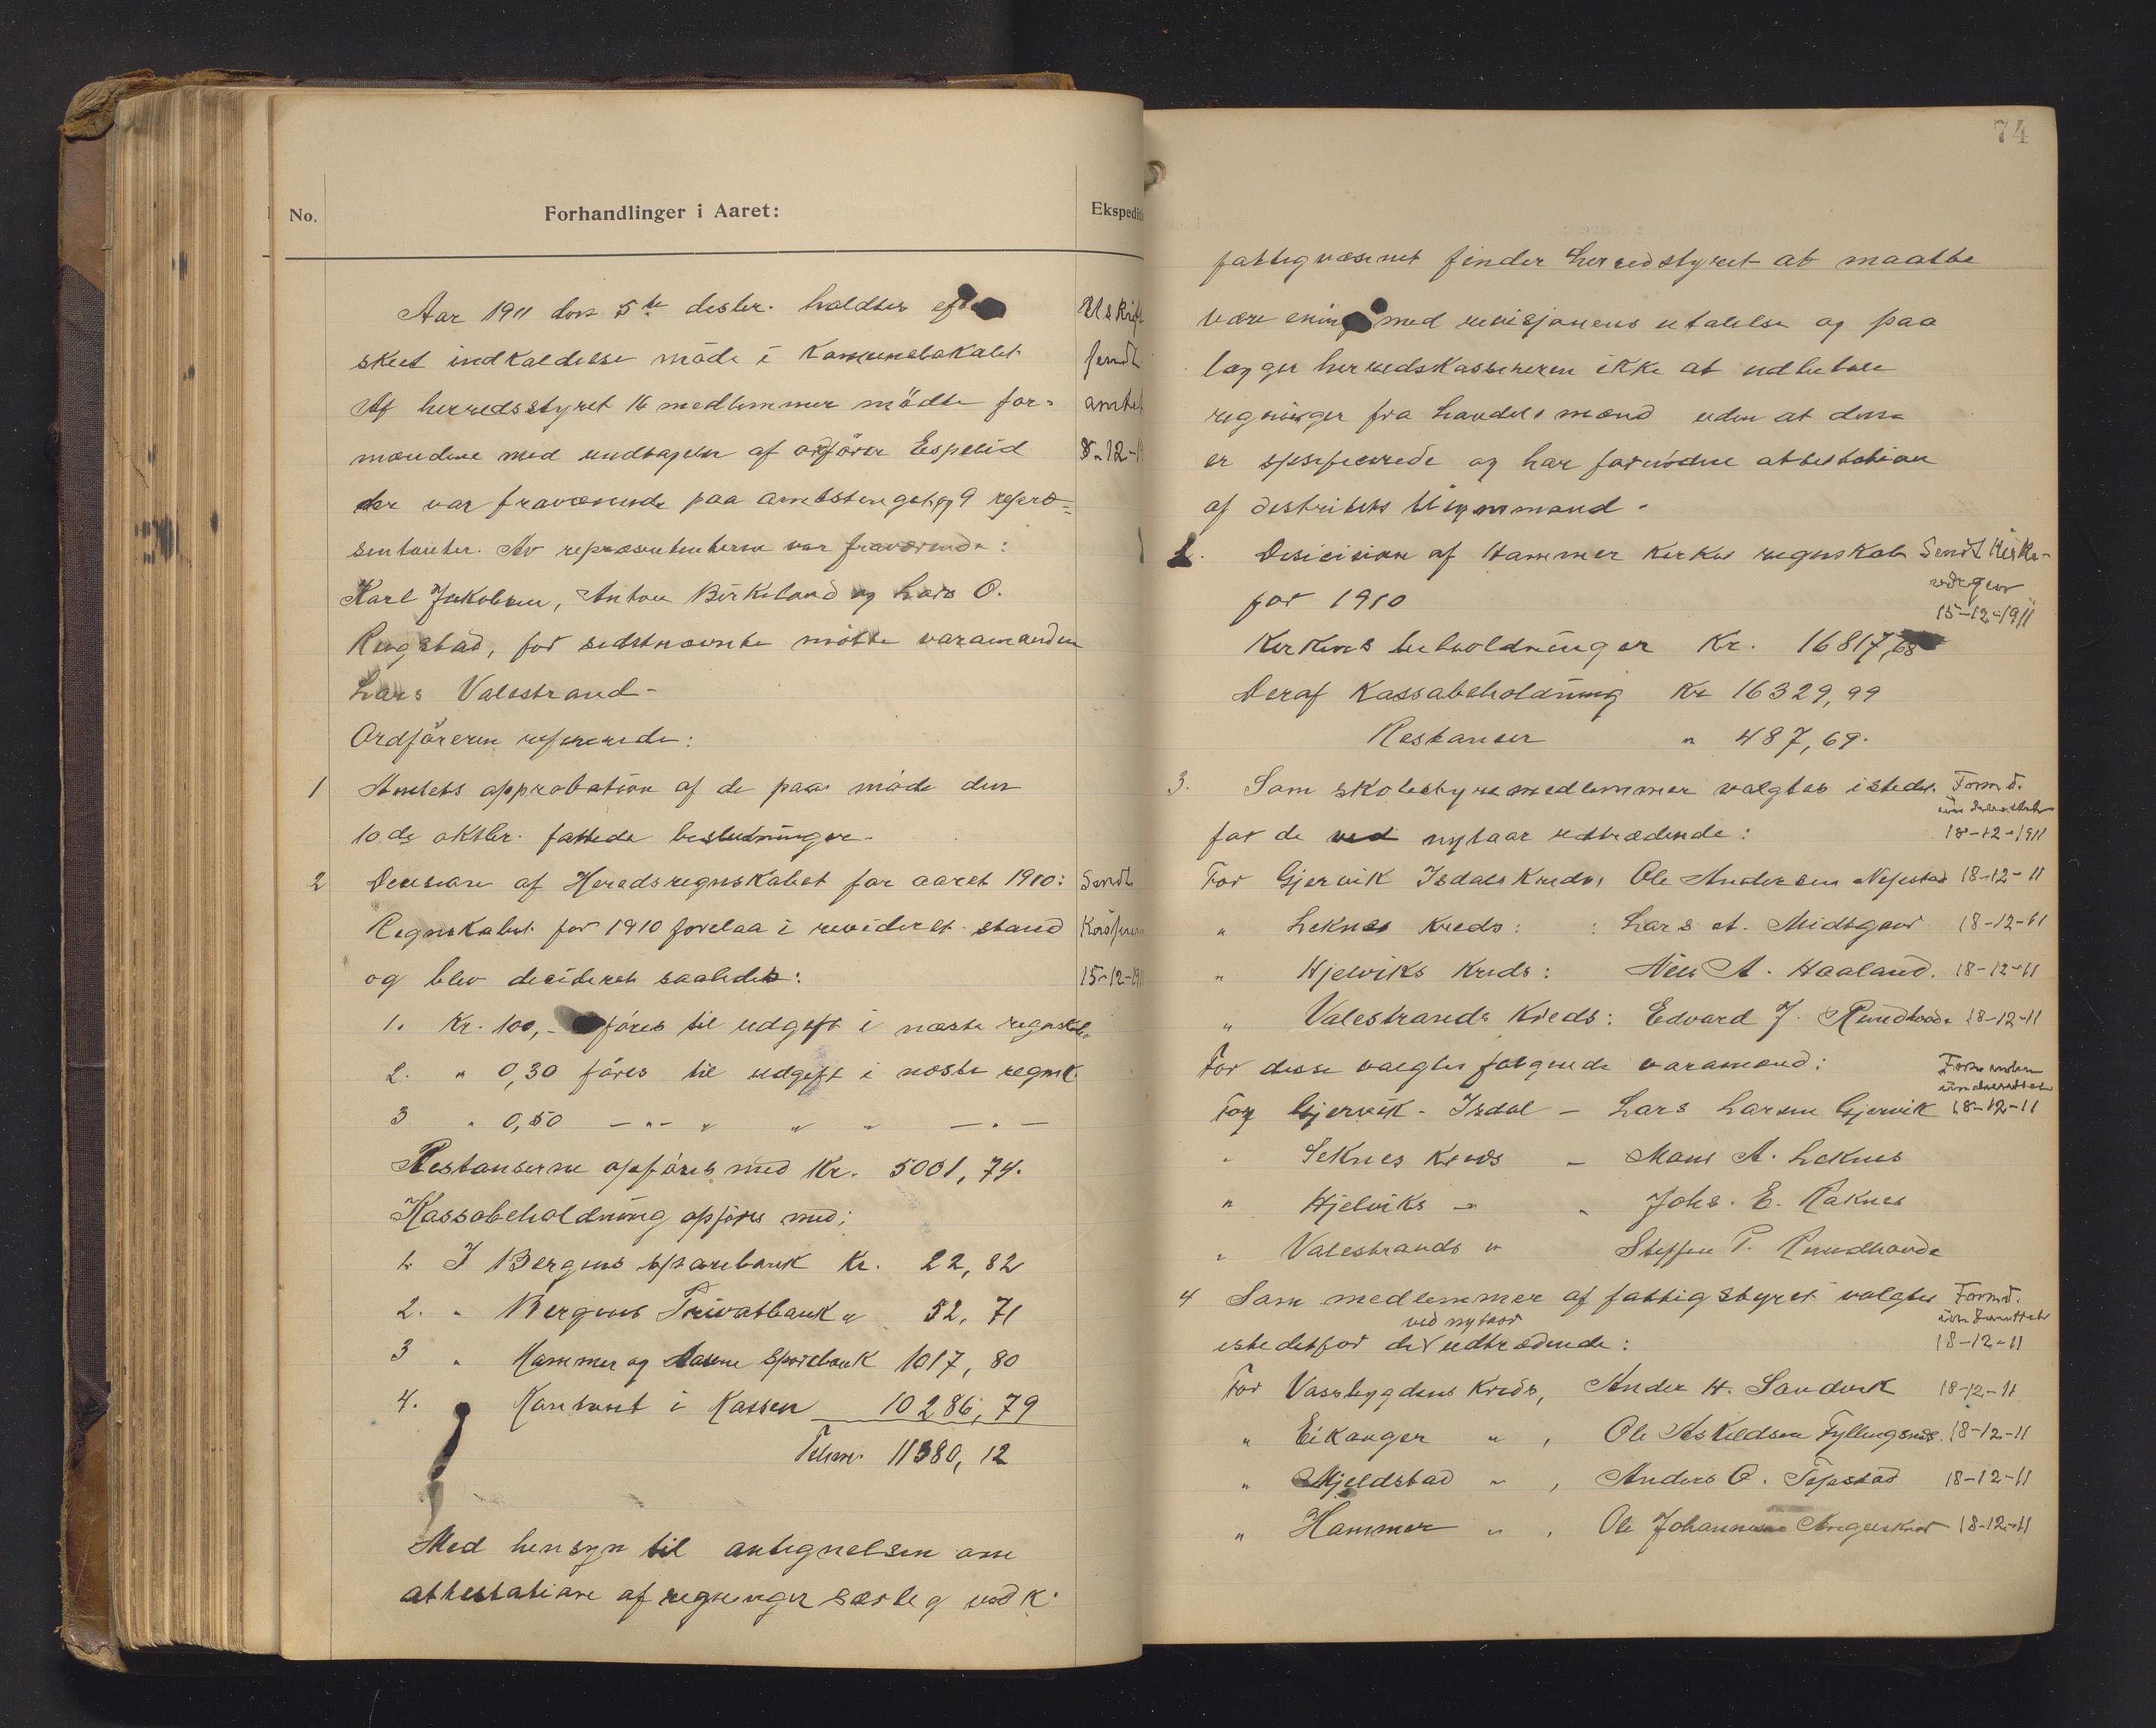 No.
Forhandlinger i Aaret:
Ekspedit
Aar 1911 den 5te desbr. holdtes efter
skeet indkaldelse møde i Kommunelokalet
Af herredsstyret 16 medlemmer mødte for=
mændene med undtagelse af ordfører Espelid
der var fraværende paa amtstinget og 9 repræ=
sentanter. Av repræsentanterne var fraværende:
Karl Jakobsen, Anton Birkeland og Lars O.
Rogstad, for sidstnævnte møtte varamanden
Lars Valestrand -
Ordføreren refererede:
1 Amtets approbation af de paa møde den
10de oktbr. fattede beslutninger.
2 Decision af Heredsregnskabet for aaret 1910:
Regnskabet for 1910 forelaa i revideret stand
og blev decideret saaledes:
1. Kr. 100,- føres til udgift i næste regnskab
2. " 0,30 føres til udgift i næste regnsk.
3 " 0,50 - " - " " " - " -
Restanserne opføres med Kr. 5001,74.
Kassabeholdning opføres med:
1. I Bergens sparebank Kr. 22,82
2. " Bergens Privatbank " 52,71
3 " Hammer og Aasene Sparebank 1017,80
4. Kontant i Kassen 10286,79
Tilsm. 11380,12
Med hensyn til antegnelsen om
attestation af regninger særleg ved k.
Utskrift
sendt
amtet
8-12-11
Sendt
Kassere
15-12-191
74
fattigvæsenet finder herredstyret at maatte
være enig med revisjonens uttalelse og paa
lægger herredskassereren ikke at udbetale
regninger fra handelsmænd uden at disse
er spesifiserede og har fornødne attestation
af distriktets tilsynsmand.
2. Desicision af Hammer kirkes regnskab
for 1910
Sendt Kirke-
vergen
15-12-1911
Kirkens beholdninger Kr. 16817,68
Deraf Kassabeholdning Kr 16329,99
Restanser " 487,69.
3. Som skolestyremedlemmer valgtes istedet
for de ved nytaar udtrædende:
Formd.
underrettet
18-12-1911
For Gjervik Isdals Kreds, Ole Andersen Nepstad 18-12-11
" Leknes Kreds: : Lars A. Midtgaard 18-12-11
" Hjelviks Kreds: Nils A. Haaland. 18-12-11
" Valestrands Kreds: Edvard J. Rundhovde 18-12-11
For disse valgtes følgende varamænd:
Formanden
underrettet
For Gjervik - Isdal - Lars Larsen Gjervik 18-12-11
" Leknes Kreds - Mons A. Leknes
" Hjelviks - " " Johs. E. Raknes
" Valestrands " Steffen P. Rundhovde
4 Som medlemmer af fattigstyret valgtes
ved nytaar
istedetfor de udtrædende:
Formd.
underrettet
18-12-11
For Vasbygdens Kreds, Anders H. Sandvik 18-12-11
" Eikanger " , Ole Askildsen Fyllingsnes. 18-12-11
" Mjeldstad " , Anders O. Tepstad 18-12-11
" Hammer " , Ole Johannesen Angelskaar 18-12-11